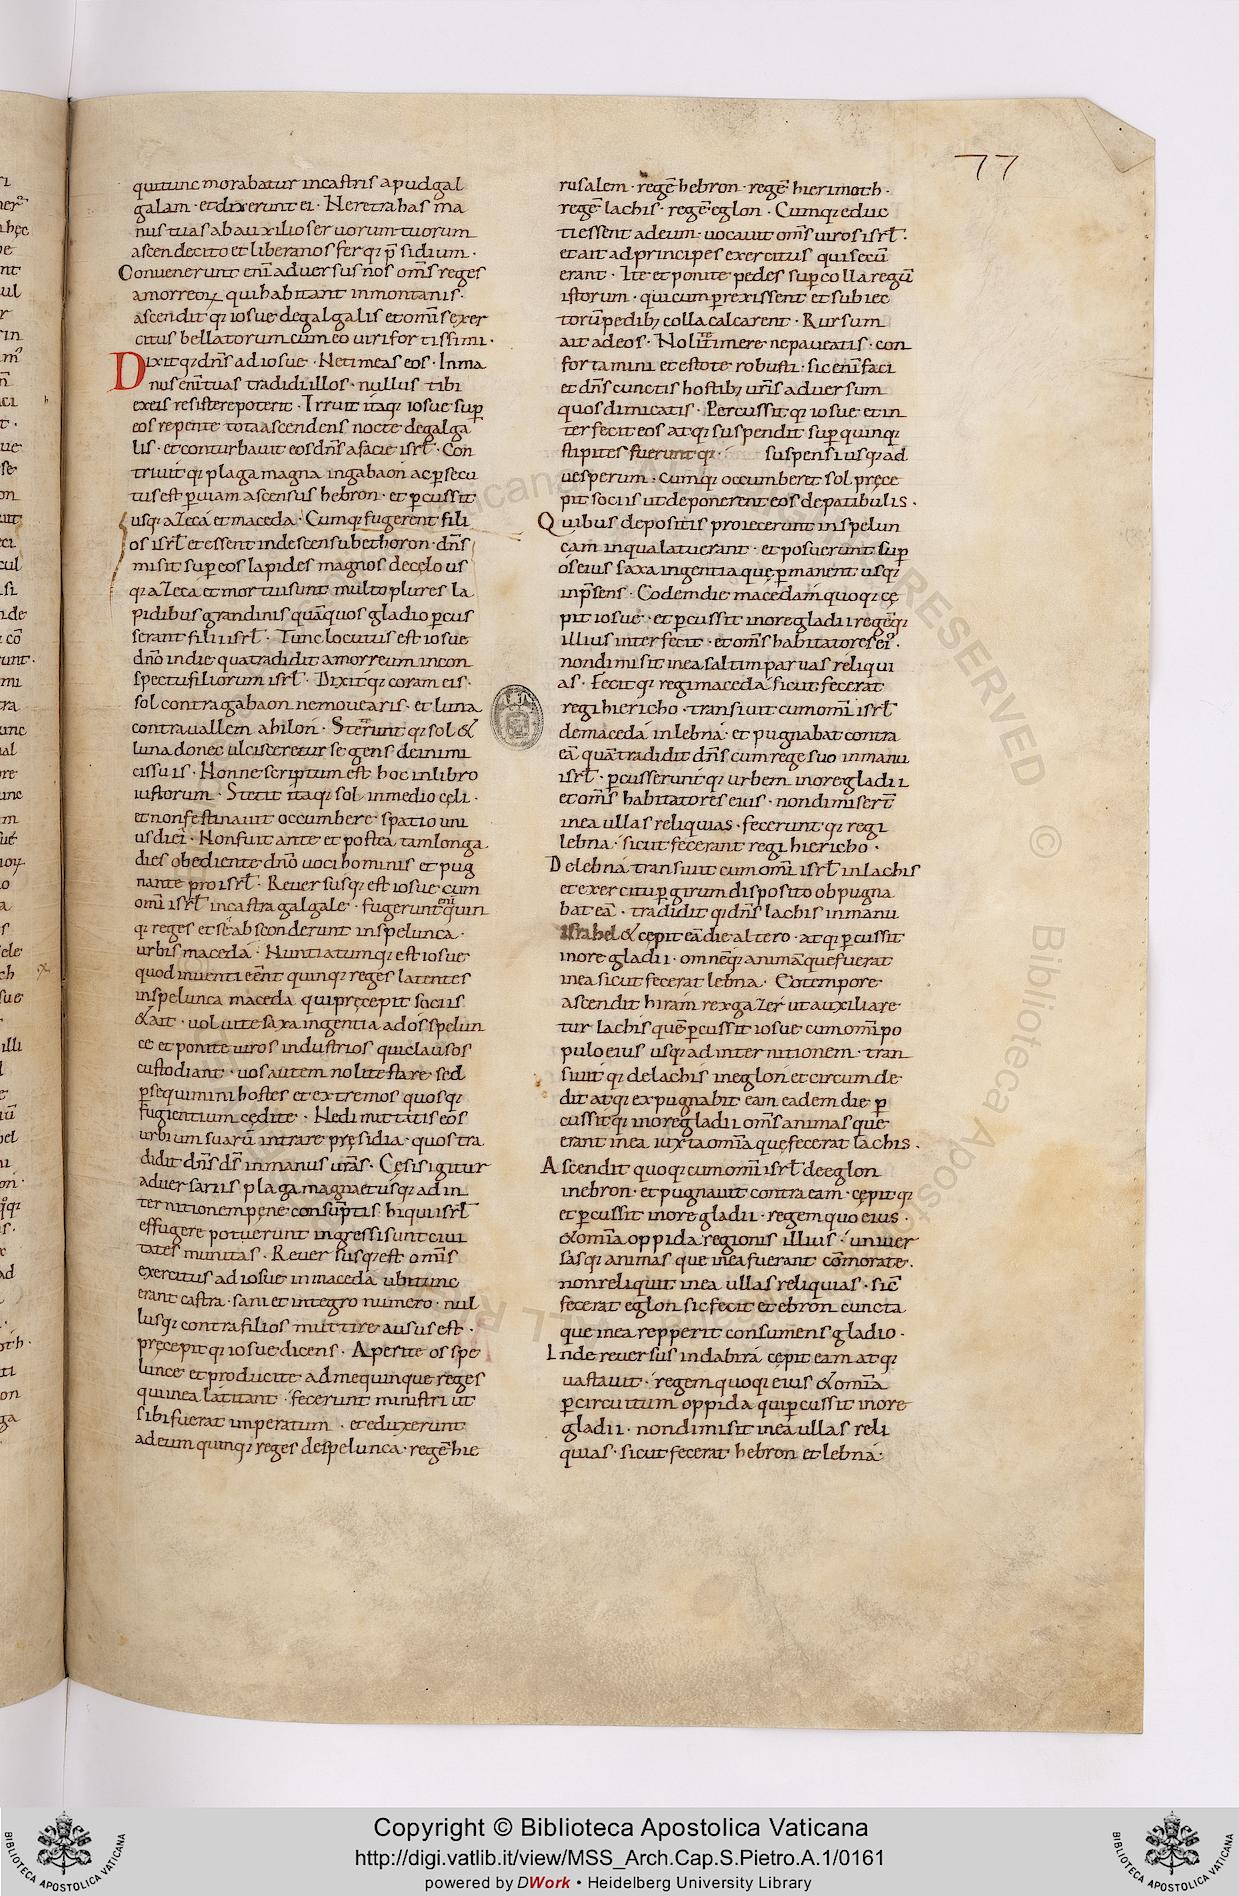 77
qui tunc morabatur in castris apud gal
galam · et dixerunt ei · Ne retrahas ma
nus tuas ab auxilio servorum tuorum
ascende cito et libera nos ferq; p̄sidium ·
Convenerunt eni͂ adversus nos om̄s reges
amorreoꝝ qui habitant in montanis ·
ascenditq; iosue de galgalis et om̄is exer
citus bellatorum cum eo viri fortissimi ·
Dixitq; dn̄s ad iosue · Ne timeas eos · In ma
nus eni͂ tuas tradidi illos · nullus tibi
ex eis resistere poterit · Irruit itaq; iosue sup̄
eos repente tota ascendens nocte de galga
lis · et conturbavit eos dn̄s a facie isrl̄ · Con
trivitq; plaga magna in gabaon ac p̱secu
tus est p̱ viam ascensus hebron · et p̱cussit
usq; azeca et maceda · Cumq; fugerent fili
os isrl̄ et essent in descensu bethoron · dn̄s
misit sup̱ eos lapides magnos de cęlo us
q; azeca et mortui sunt multo plures la
pidibus grandinis quā quos gladio p̱cus
serant filii isrl̄ · Tunc locutus est iosue
dn̄o in die qua tradidit amorreum in con
spectu filiorum isrl̄ · Dixitq; coram eis ·
sol contra gabaon ne movearis · et luna
contra vallem ahilon · Steteruntq; sol &
luna donec ulcisceretur se gens de inimi
cis suis · Nonne scriptum est hoc in libro
iustorum · Stetit itaq; sol in medio cęli ·
et non festinavit occumbere spatio uni
us diei · Non fuit ante et postea tam longa
dies obediente dn̄o voci hominis et pug
nante pro isrl̄ · Reversusq; est iosue cum
omi͂ isrl̄ in castra galgale · fugerunt eni͂ quin
q; reges et se absconderunt in spelunca ·
urbis maceda · Nuntiatumq; est iosue
quod inventi eēnt quinq; reges latentes
in spelunca maceda qui pręcepit sociis
& ait · volvite saxa ingentia ad os spelun
ce et ponite viros industrios qui clausos
custodiant · vos autem nolite stare sed
p̱sequimini hostes et extremos quosq;
fugientium cędite · Ne dimittatis eos
urbium suarū intrare pręsidia · quos tra
didit dn̄s ds̄ in manus vr̄as · Cęsis igitur
adversariis plaga magna et usq; ad in
ternitionem pęne consūptis · hi qui isrl̄
effugere potuerunt ingressi sunt civi
tates munitas · Reversusq; est omīs
exercitus ad iosue in maceda ubi tunc
erant castra · sani et integro numero · nul
lusq; contra filios muttire ausus est ·
pręcepitq; iosue dicens · Aperite os spe
lunce et producite ad me quinque reges
qui in ea latitant · fecerunt ministri ut
sibi fuerat imperatum · et eduxerunt
ad eum quinq; reges de spelunca · regē hie
rusalem · regē hebron · regē hierimoth ·
regē lachis · regē eglon · Cumq; educ
ti essent ad eum · vocavit om̄s viros isrl̄ ·
et ait ad principes exercitus qui secū
erant · Ite et ponite pedes sup̱ colla regū
istorum · qui cum p̱rexissent et subiec
torū pedib; colla calcarent · Rursum
ait ad eos · Nolite timere ne paveatis · con
fortamini et estote robusti · sic eni͂ faci
et dn̄s cunctis hostib; vr̄is adversum
quos dimicatis · Percussitq; iosue et in
terfecit eos atq; suspendit sup̱ quinq;
stipites fueruntq; suspensi usq; ad
vesperum · cumq; occumberet sol pręce
pit sociis ut deponerent eos de patibulis ·
Quibus depositis proiecerunt in spelun
cam in qua latuerant · et posuerunt sup̱
os eius saxa ingentia quę p̱manent usq;
in p̄sens · Eodem die macedam quoq; cę
pit iosue · et p̱cussit in ore gladii regēq;
illius interfecit · et om̄s habitatores ei⁹ ·
non dimisit in ea saltim parvas reliqui
as · Fecitq; regi maceda sicut fecerat
regi hiericho · transivit cum omi͂ isrl̄
de maceda in lebna · et pugnabat contra
eā quā tradidit dn̄s cum rege suo in manu
isrl̄ · p̱cusseruntq; urbem in ore gladii
et om̄s habitatores eius · non dimiserт̄
in ea ullas reliquias · feceruntq; regi
lebna · sicut fecerant regi hiericho ·
De lebna transivit cum omi͂ isrl̄ in lachis
et exercitu p̱ girum disposito obpugna
bat eā · tradiditq; dn̄s lachis in manu
israhel & cępit eā die altero · atq; p̱cussit
in ore gladii · omnēq; animā que fuerat
in ea sicut fecerat lebna · Eo tempore
ascendit hiram rex gazer ut auxiliare
tur lachis quē p̱cussit iosue cum omi͂ po
pulo eius usq; ad internitionem · tran
sivitq; de lachis in eglon et circumde
dit atq; expugnabit eam eadem die p̱
cussitq; in ore gladii om̄s animas que
erant in ea iuxta omīa quę fecerat lachis ·
Ascendit quoq; cum omi͂ isrl̄ de eglon
in ebron · et pugnavit contra eam · cępitq;
et p̱cussit in ore gladii · regem quo eius ·
& omīa oppida regionis illius · univer
sasq; animas que in ea fuerant cōmorate ·
non reliquit in ea ullas reliquias · sic̄
fecerat eglon sic fecit et ebron cuncta
que in ea repperit consumens gladio ·
Inde reversus in dabira cępit eam atq;
vastavit · regem quoq; eius & omīa
p̱ circuitum oppida qui p̱cussit in ore
gladii · non dimisit in ea ullas reli
quias · sicut fecerat hebron et lebna ·
Copyright © Biblioteca Apostolica Vaticana
http://digi.vatlib.it/view/MSS_Arch.Cap.S.Pietro.A.1/0161
powered by DWork • Heidelberg University Library